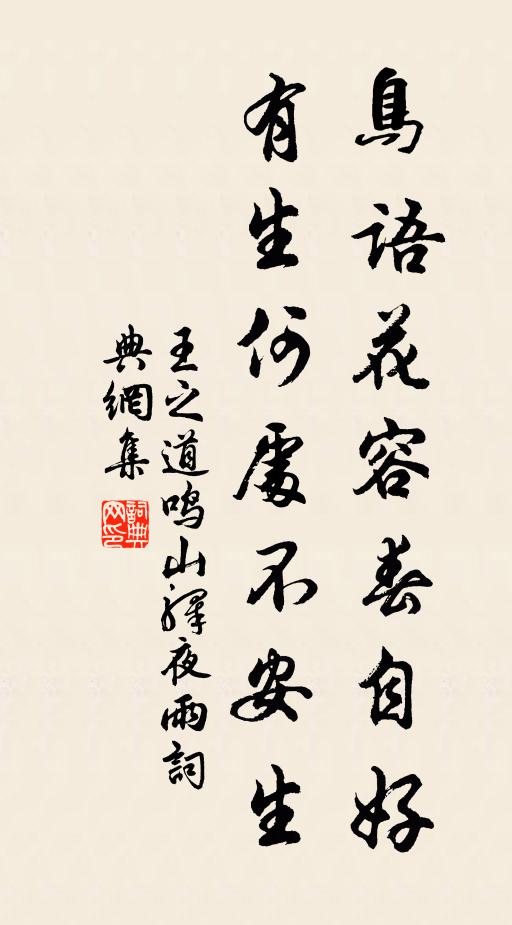 鳥語花容春自好
有生何處不安生
王之道鸣山驛夜雨詞
典網集
詞典
网印